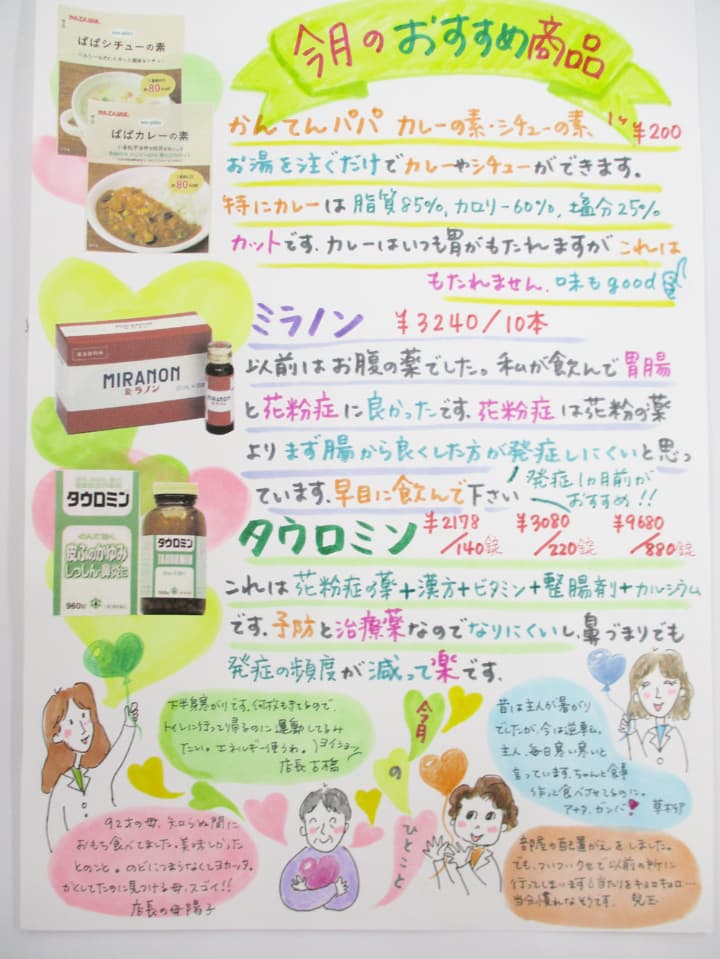 今月のおすすめ商品
ぱぱシチューの素
約80kcal
ぱぱカレーの素
約80kcal
かんてんパパ カレーの素・シチューの素、1ヶ¥200
お湯を注ぐだけでカレーやシチューができます。
特にカレーは脂質85%,カロリー60%,塩分25%
カットです、カレーはいつも胃がもたれますがこれは
もたれません、味もgood
ミラノン ¥3240/10本
MIRANON
ミラノン
MIRANON
以前はお腹の薬でした。私が飲んで胃腸
と花粉症に良かったです、花粉症は花粉の薬
よりまず腸から良くした方が発症しにくいと思っ
ています、早目に飲んで下さい
発症1ヵ月前が
おすすめ!!
タウロミン ¥2178/140錠 ¥3080/220錠 ¥9680/880錠
タウロミン
のんで治す、
皮ふのかゆみ
しっしん・鼻炎に
960錠
タウロミン
これは花粉症の薬+漢方+ビタミン+整腸剤+カルシウム
です、予防と治療薬なのでなりにくいし、鼻づまりでも
発症の頻度が減って楽です。
今月のひとこと
下半身寒がりです。何枚もきてるので、
トイレに行って帰るのに運動してるみ
たい。エネルギー使うわ。ヨイショッ
店長古橋
昔は主人が暑がり
でしたが、今は逆転。
主人、毎日寒い寒いと
言っています、ちゃんと食事
作って食べさせてるのに。
アナタ、ガンバ! 草村
92才の母、知らぬ間に
おもち食べてました。美味しかった
とのこと。のどにつまらなくてヨカッタ。
かくしてたのに見つける母、スゴイ!!
店長の母陽子
部屋の配置がえをしました。
でも、ついついクセで以前の所に
行ってしまいます。当たりをキョロキョロ…
当分慣れなそうです。 児玉